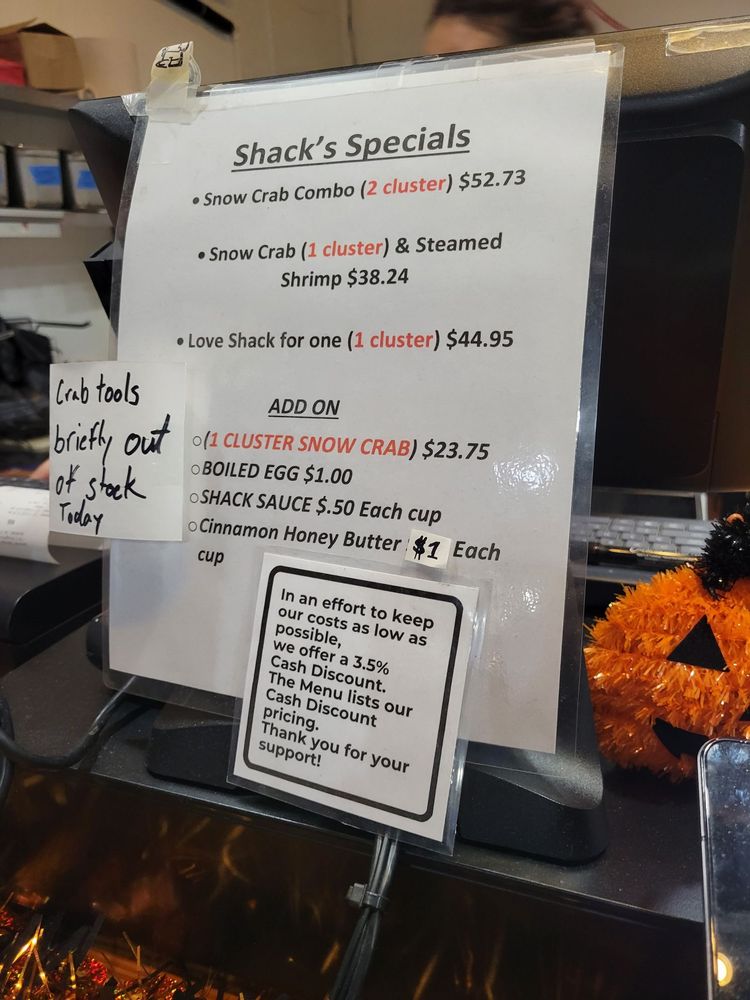 Shack's Specials
• Snow Crab Combo (2 cluster) $52.73
• Snow Crab (1 cluster) & Steamed
Shrimp $38.24
• Love Shack for one (1 cluster) $44.95
ADD ON
○(1 CLUSTER SNOW CRAB) $23.75
○BOILED EGG $1.00
○SHACK SAUCE $.50 Each cup
○Cinnamon Honey Butter $1 Each
cup
Crab tools
briefly out
of stock
Today
In an effort to keep
our costs as low as
possible,
we offer a 3.5%
Cash Discount.
The Menu lists our
Cash Discount
pricing.
Thank you for your
support!